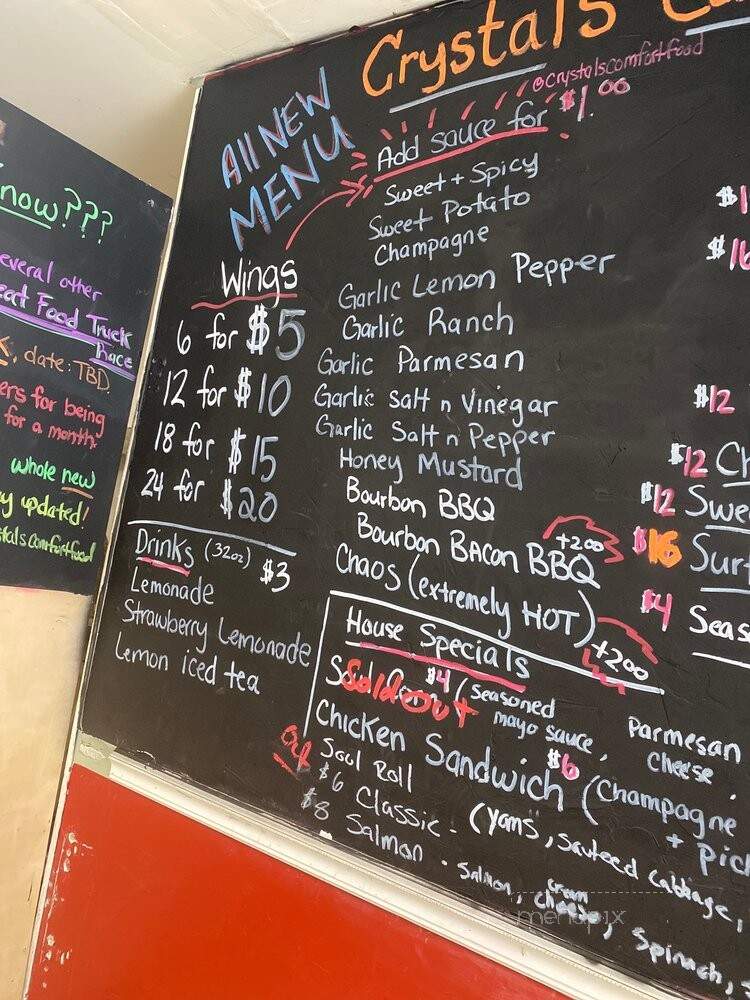 now???
several other
eat Food Truck
Race
date: TBD
ers for being
for a month
whole new
y updated!
stalscomfortfood
Crystals
@crystalscomfortfood
All NEW
MENU
Add sauce for $1.00
Sweet + Spicy
Sweet Potato
Champagne
Garlic Lemon Pepper
Garlic Ranch
Garlic Parmesan
Garlic Salt n Vinegar
Garlic Salt n Pepper
Honey Mustard
Bourbon BBQ
Bourbon Bacon BBQ +200
Chaos (extremely HOT) +200
Wings
6 for $5
12 for $10
18 for $15
24 for $20
Drinks (32oz) $3
Lemonade
Strawberry Lemonade
Lemon iced tea
House Specials
Sold Out $4 (seasoned
mayo sauce, Parmesan
cheese,
Chicken Sandwich $6 (Champagne
+ Pic
Out
Soul Roll
$6 Classic - (Yams, Sauteed Cabbage,
$8 Salmon - Salmon, cream
cheese, Spinach,
$1
$16
$12
$12 Ch
$12 Swe
$16 Surf
$4 Seas
menupix